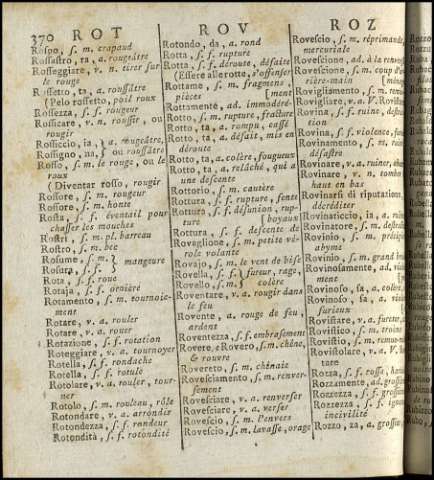 370 ROT ROV ROZ
Rospo, s. m. crapaud
Rossastro, ra, a. rougeâtre
Rosseggiare, v. n. tirer sur
le rouge
Rossetto, ta, a. roussâtre
(Pelo rossetto, poil roux
Rossezza, s. f. rougeur
Rossicare, v. n. roussir, ou
rougir
Rossiccio, ia, } a. rougeâtre,
Rossigno, na, } ou roussâtre
Rosso, s. m. le rouge, ou le
roux
(Diventar rosso, rougir
Rossore, s. m. rougeur
Rossore, s. m. honte
Rosta, s. f. éventail pour
chasser les mouches
Rostri, s. m. pl. barreau
Rostro, s. m. bec
Rosume, s. m. } mangeure
Rosura, s. f. }
Rota, s. f. roue
Rotaja, s. f. orniére
Rotamento, s. m. tournoie-
ment
Rotare, v. a. rouler
Rotare, v. a. rouer
Rotazione, s. f. rotation
Roteggiare, v. a. tournoyer
Rotella, s. f. rondache
Rotella, s. f. rotule
Rotolare, v. a. rouler, tour-
ner
Rotolo, s. m. rouleau, rôle
Rotondare, v. a. arrondir
Rotondezza, s. f. rondeur
Rotondità, s. f. rotondité
Rotondo, da, a. rond
Rotta, s. f. rupture
Rotta, s. f. déroute, défaite
(Essere alle rotte, s'offenser
Rottame, s. m. fragmens,
piéces [ment
Rottamente, ad. immodéré-
Rotto, s. m. rupture, fracture
Rotto, ta, a. rompu, cassé
Rotto, ta, a. défait, mis en
déroute
Rotto, ta, a. colére, fougueux
Rotto, ta, a. relâché, qui a
une descente
Rottorio, s. m. cautére
Rottura, s. f. rupture, fente
Rottura, s. f. désunion, rup-
ture [boyaux
Rottura, s. f. descente de
Rovaglione, s. m. petite vé-
role volante
Rovajo, s. m. le vent de bise
Rovella, s. f. } fureur, rage,
Rovello, s. m. } colére
Roventare, v. a. rougir dans
le feu
Rovente, a. rouge de feu,
ardent
Roventezza, s. f. embrasement
Rovere, e Rovero, s. m. chêne,
& rouvre
Rovereto, s. m. chênaie
Rovesciamento, s. m. renver-
sement
Rovesciare, v. a. renverser
Rovesciare, v. a. verser
Rovescio, s. m. l'envers
Rovescio, s. m. lavasse, orage
Rovescio, s. m. réprimande,
mercuriale
Rovescione, ad. à la
Rovescione, s. m. coup
main
Rovigliamento, s. m.
Rovigliare, v. a. V.
Rovina, s. f. ruine,
tion
Rovina, s. f. violence,
Rovinamento, s. m.
désastre
Rovinare, v. a. ruiner,
Rovinare, v. n. tomber
haut en bas
Rovinarsi di riputazione
décréditer
Rovinaticcio, ia, a.
Rovinatore, s. m.
Rovinio, s. m.
abyme
Rovinio, s. m. grand
Rovinosamente, ad.
ment
Rovinoso, sa, a. colére,
Rovinoso, sa, a.
furieux
Rovistare, v. a.
Rovistico, s. m. troëne
Rovistio, s. m.
Rovistolare, v. a. V.
tare
Rozza, s. f. rosse,
Rozzamente, ad.
Rozzezza, s. f.
Rozzezza, s. f.
incivilité
Rozzo, za, a. grossier,